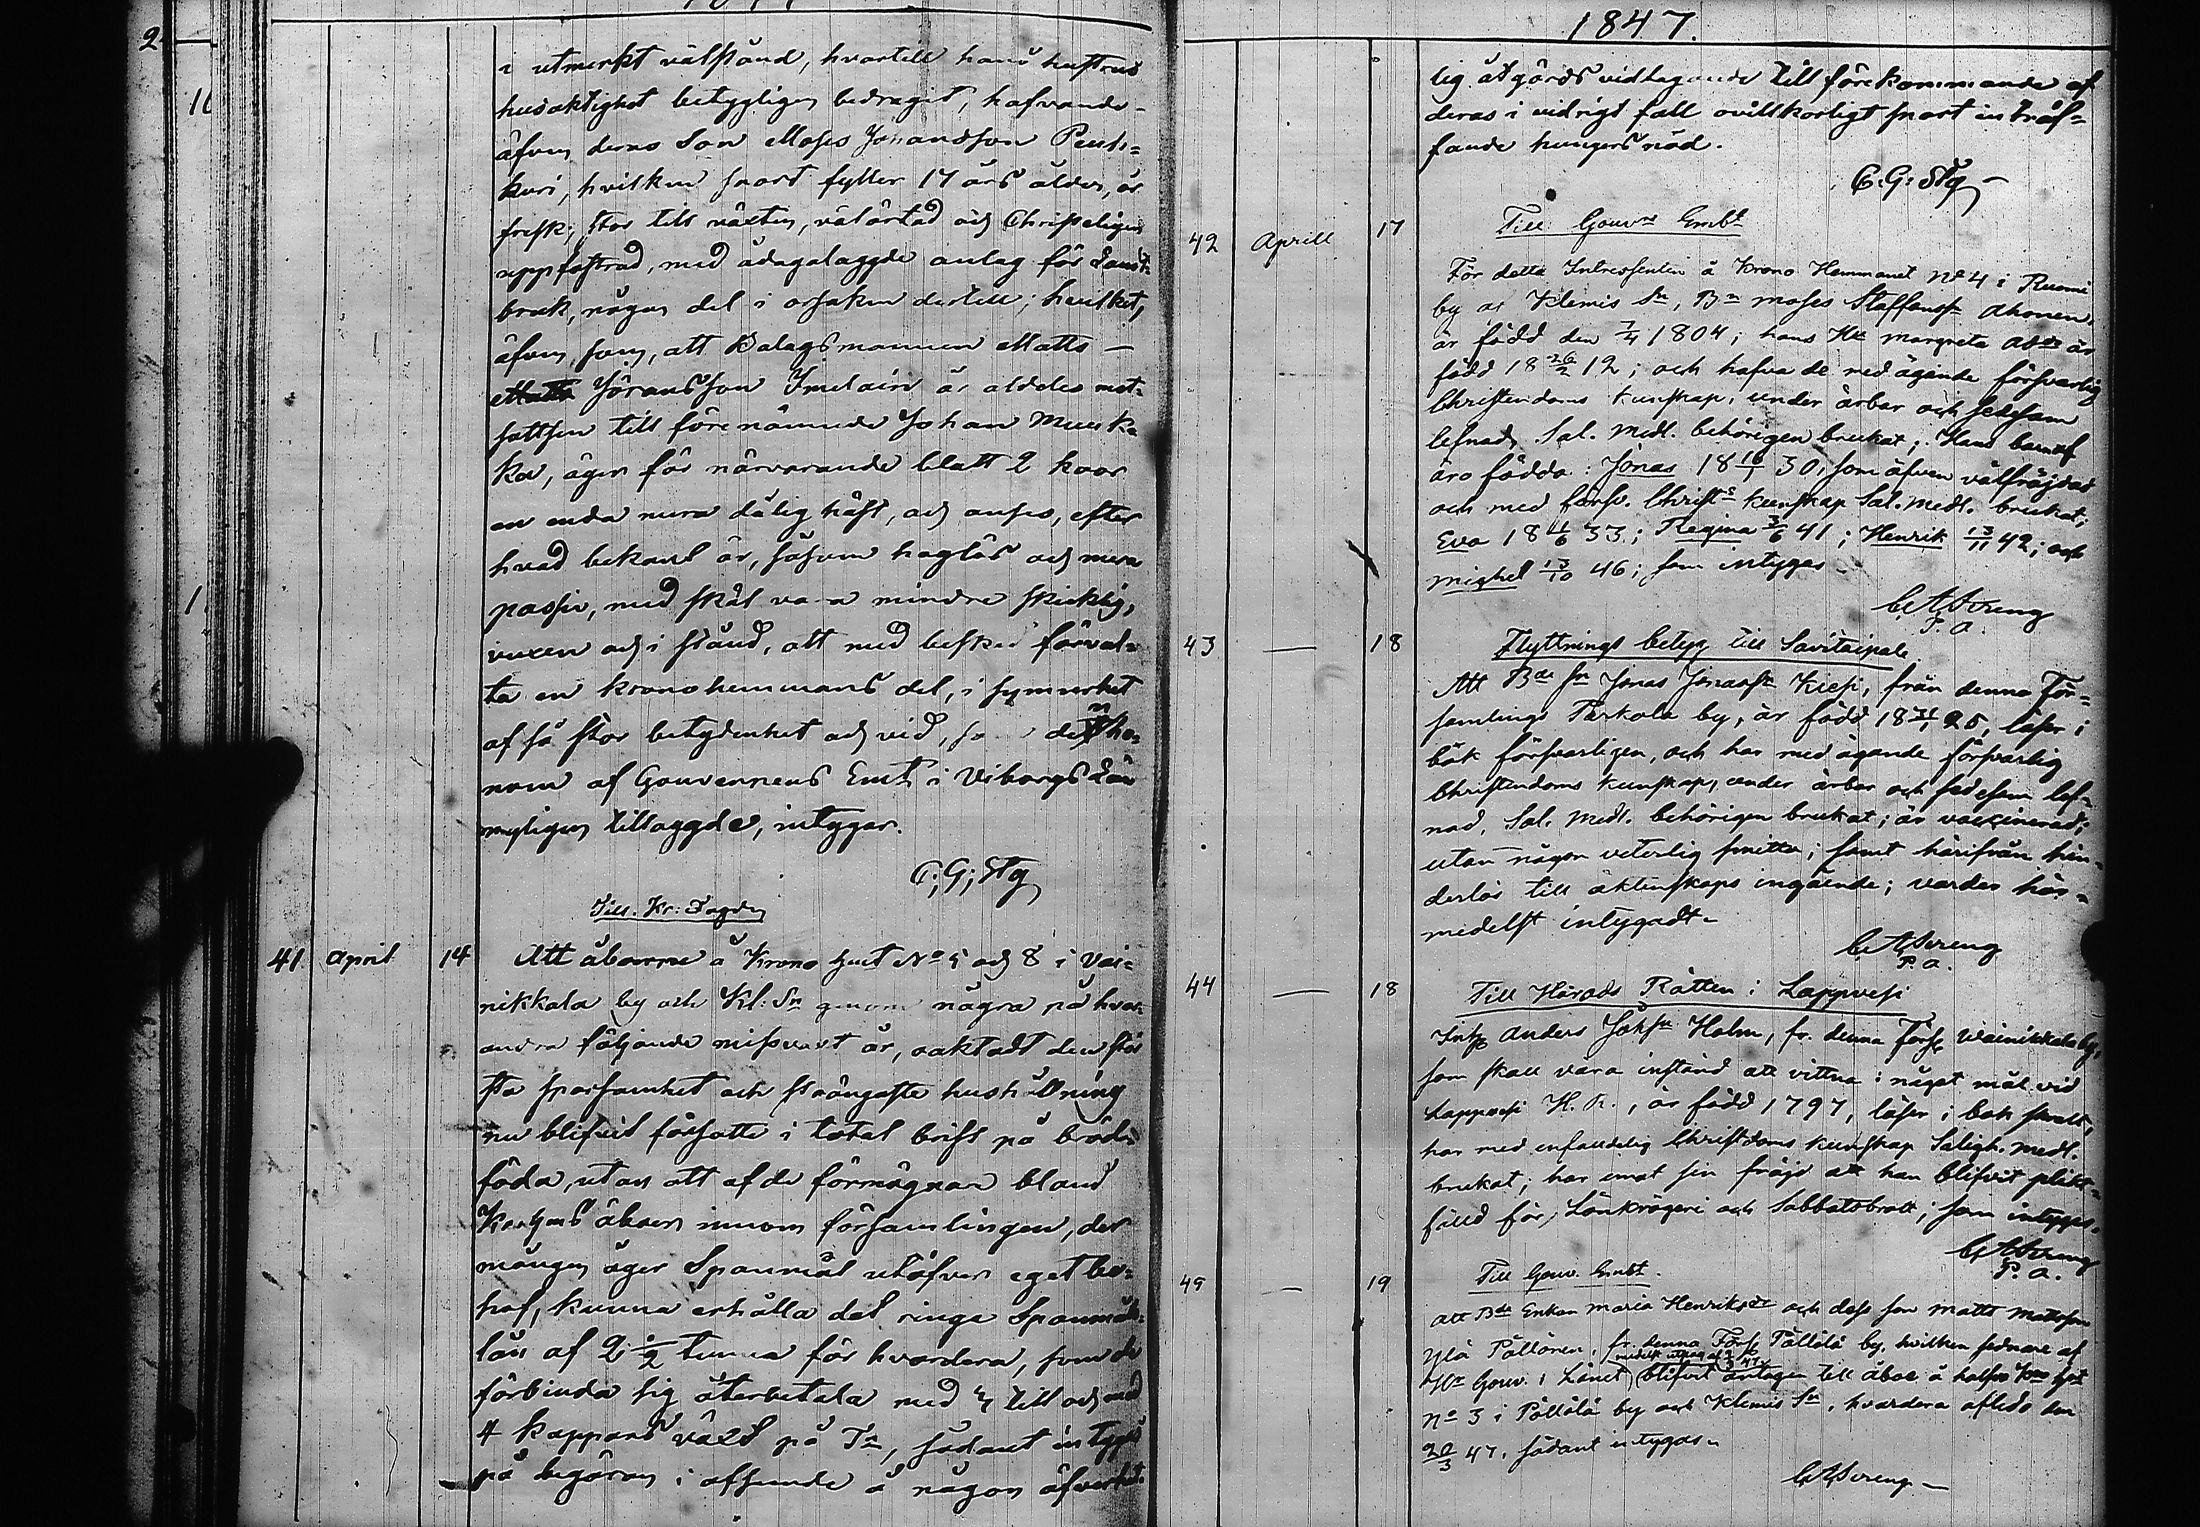 i utmerkt välstånd, hvartill hans hustrus
husaktighet betyggligen bedragit, hafvande
äfven deras Son Moses Johansson Pent-
kuri, hvilken snart fyller 17 års ålder, är
frisk, stor till växten, välartad och Christeligen
uppfostrad, med ådagalaggde anlag för Landt-
bruk, någon del i orsaken dertill; hvilket,
äfven som, att Bolagsmannen Matts
Jöransson Imelain är aldeles mot-
sattsen till förenämnde Johan Muuka-
ka, äger för närvarande blatt 2 koor
en enda mera dålig häst, och anses, efter
hvad bekant är, såsom haglös och mera
passiv, med skäl vara mindre skicklig,
vuxen och i stånd, att med besked förval-
ta en kronohemmans del, i synnerhet
af så stor betydenhet och vid, som den ho-
nom af Gouvernens Embt i Viborgs Län
nyligen tillaggde, intygar.
C; G; Stg
Till Kr: Fogden
41. April 14
Att åboerne å Krono Hmt No 5 och 8 i Vai-
nikkala by och Kl: Sn genom några på hvar-
andra följande missvext år, oaktadt den stör
sta sparsamhet och strängaste hushållning
nu blifvit försatte i total brist på bröd-
föda, utan att af de förmögnare bland
åboer innom församlingen, der
mången äger Spanmål utöfver eget be-
hof, kunna erhålla det ringa Spanmåls-
lån af 2 1/2 tunna för hvardera, som de
förbinda sig återbetala med till och med
4 kappars växt på Tn, sådant intygas
på begäran i afseende å någon öfverhet-
1847.
lig åtgärds vidtagande till förekommande af
deras i vidrigt fall ovillkorligt snart inträf-
fande hungersnöd.
C: G: Stg
42 Aprill 17
Till Gouvrs Embt
För detta Intressenten å Krono Hemmanet No 4 i Ruomi
by af Klemis Sn, Bn Moses Staffanssn Ahonen,
är född den 7/4 1804; hans Hu Margreta är
född 18 26/2 12; och hafva de med ägande försvarlig
Christendoms kunskap, under ärbar och sedesam
lefnad, Sal. Medl. behörigen brukat; Hans barn
äro födda: Jonas 18 16/1 30, som äfven välfräjdad
och med försv. Christs kunskap Sal. Medl. brukat;
Eva 18 11/6 33; Regina 3/6 41; Henrik 13/11 42; och
Mighel 13/10 46; som intygas
P. A.
43 — 18
Flyttnings betyg till Savitaipale
Att Bde Sn Jonas Jonassn Kiesi, från denna För-
samlings Tarkola by, är född 18 25, läser i
bok försvarligen, och har med ägande försvarlig
Christendoms kunskap, under ärbar och sedesam lef-
nad, Sal. Medl. behörigen brukat; är vaccinerad;
utan någon veterlig smitta; samt härifrån hin-
derlös till äktenskaps ingående; varder här-
medelst intygadt
P. A.
44 — 18
Till Härads Rätten i Lappvesi
Anders Johssn Holm, fr. denna Förs. Wainikkala by,
som skall vara inständ att vittna i något mål vid
Lappvesi H. R., är född 1797, läser i bok svalt,
har med enfaldig Christdoms kunskap Saligh. Medl.
brukat; har emot sin fräjd att han blifvit plikt-
fälld för Lönkrögeri och Sabbatsbrott; som intygas.
P. A.
45 — 19
Till Gouv. Embt.
Att Bde Enkan Maria Henriksdr och dess son Matts Mattsson
Ylä Pällönen, fr. denna Förs. Pällilä by, hvilken sednare af
Gouv. i Länet blifvit antagen till åboe å halfva Kno Hmt
No 3 i Pällilä by och Klemis Sn, hvardera afleds den
20/3 47, sådant intygas